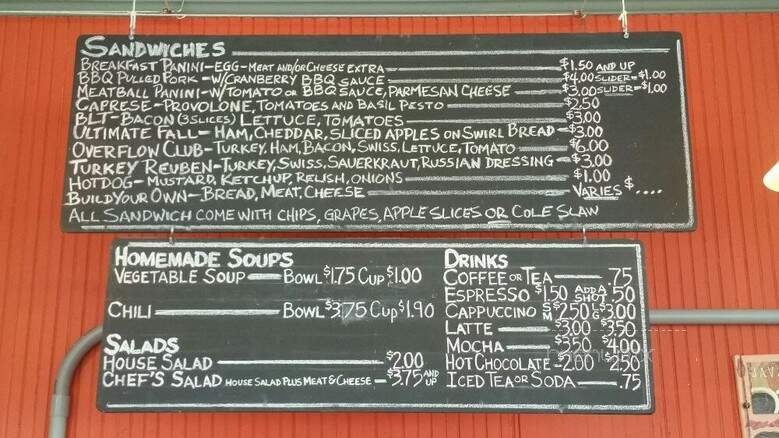 SANDWICHES
BREAKFAST PANINI-EGG-MEAT AND/OR CHEESE EXTRA $1.50 AND UP
BBQ PULLED PORK - W/CRANBERRY BBQ SAUCE $4.00 SLIDER=$1.00
MEATBALL PANINI-W/TOMATO OR BBQ SAUCE, PARMESAN CHEESE $3.00 SLIDER=$1.00
CAPRESE-PROVOLONE, TOMATOES AND BASIL PESTO $2.50
BLT-BACON (3 SLICES) LETTUCE, TOMATOES $3.00
ULTIMATE FALL-HAM, CHEDDAR, SLICED APPLES ON SWIRL BREAD $3.00
OVERFLOW CLUB-TURKEY, HAM, BACON, SWISS, LETTUCE, TOMATO $6.00
TURKEY REUBEN-TURKEY, SWISS, SAUERKRAUT, RUSSIAN DRESSING $3.00
HOTDOG-MUSTARD, KETCHUP, RELISH, ONIONS $1.00
BUILD YOUR OWN-BREAD, MEAT, CHEESE VARIES $....
ALL SANDWICH COME WITH CHIPS, GRAPES, APPLE SLICES OR COLE SLAW
HOMEMADE SOUPS
VEGETABLE SOUP BOWL $1.75 CUP $1.00
CHILI BOWL $3.75 CUP $1.90
SALADS
HOUSE SALAD $2.00
CHEF'S SALAD HOUSE SALAD PLUS MEAT & CHEESE - $3.75 AND UP
DRINKS
COFFEE OR TEA .75
ESPRESSO $1.50 ADD A SHOT .50
CAPPUCCINO SM $2.50 LG $3.00
LATTE $3.00 $3.50
MOCHA $3.50 $4.00
HOT CHOCOLATE -2.00 $2.50
ICED TEA OR SODA .75